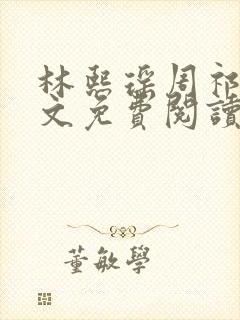 林熙瑶周祁
文免费阅读
董敏学